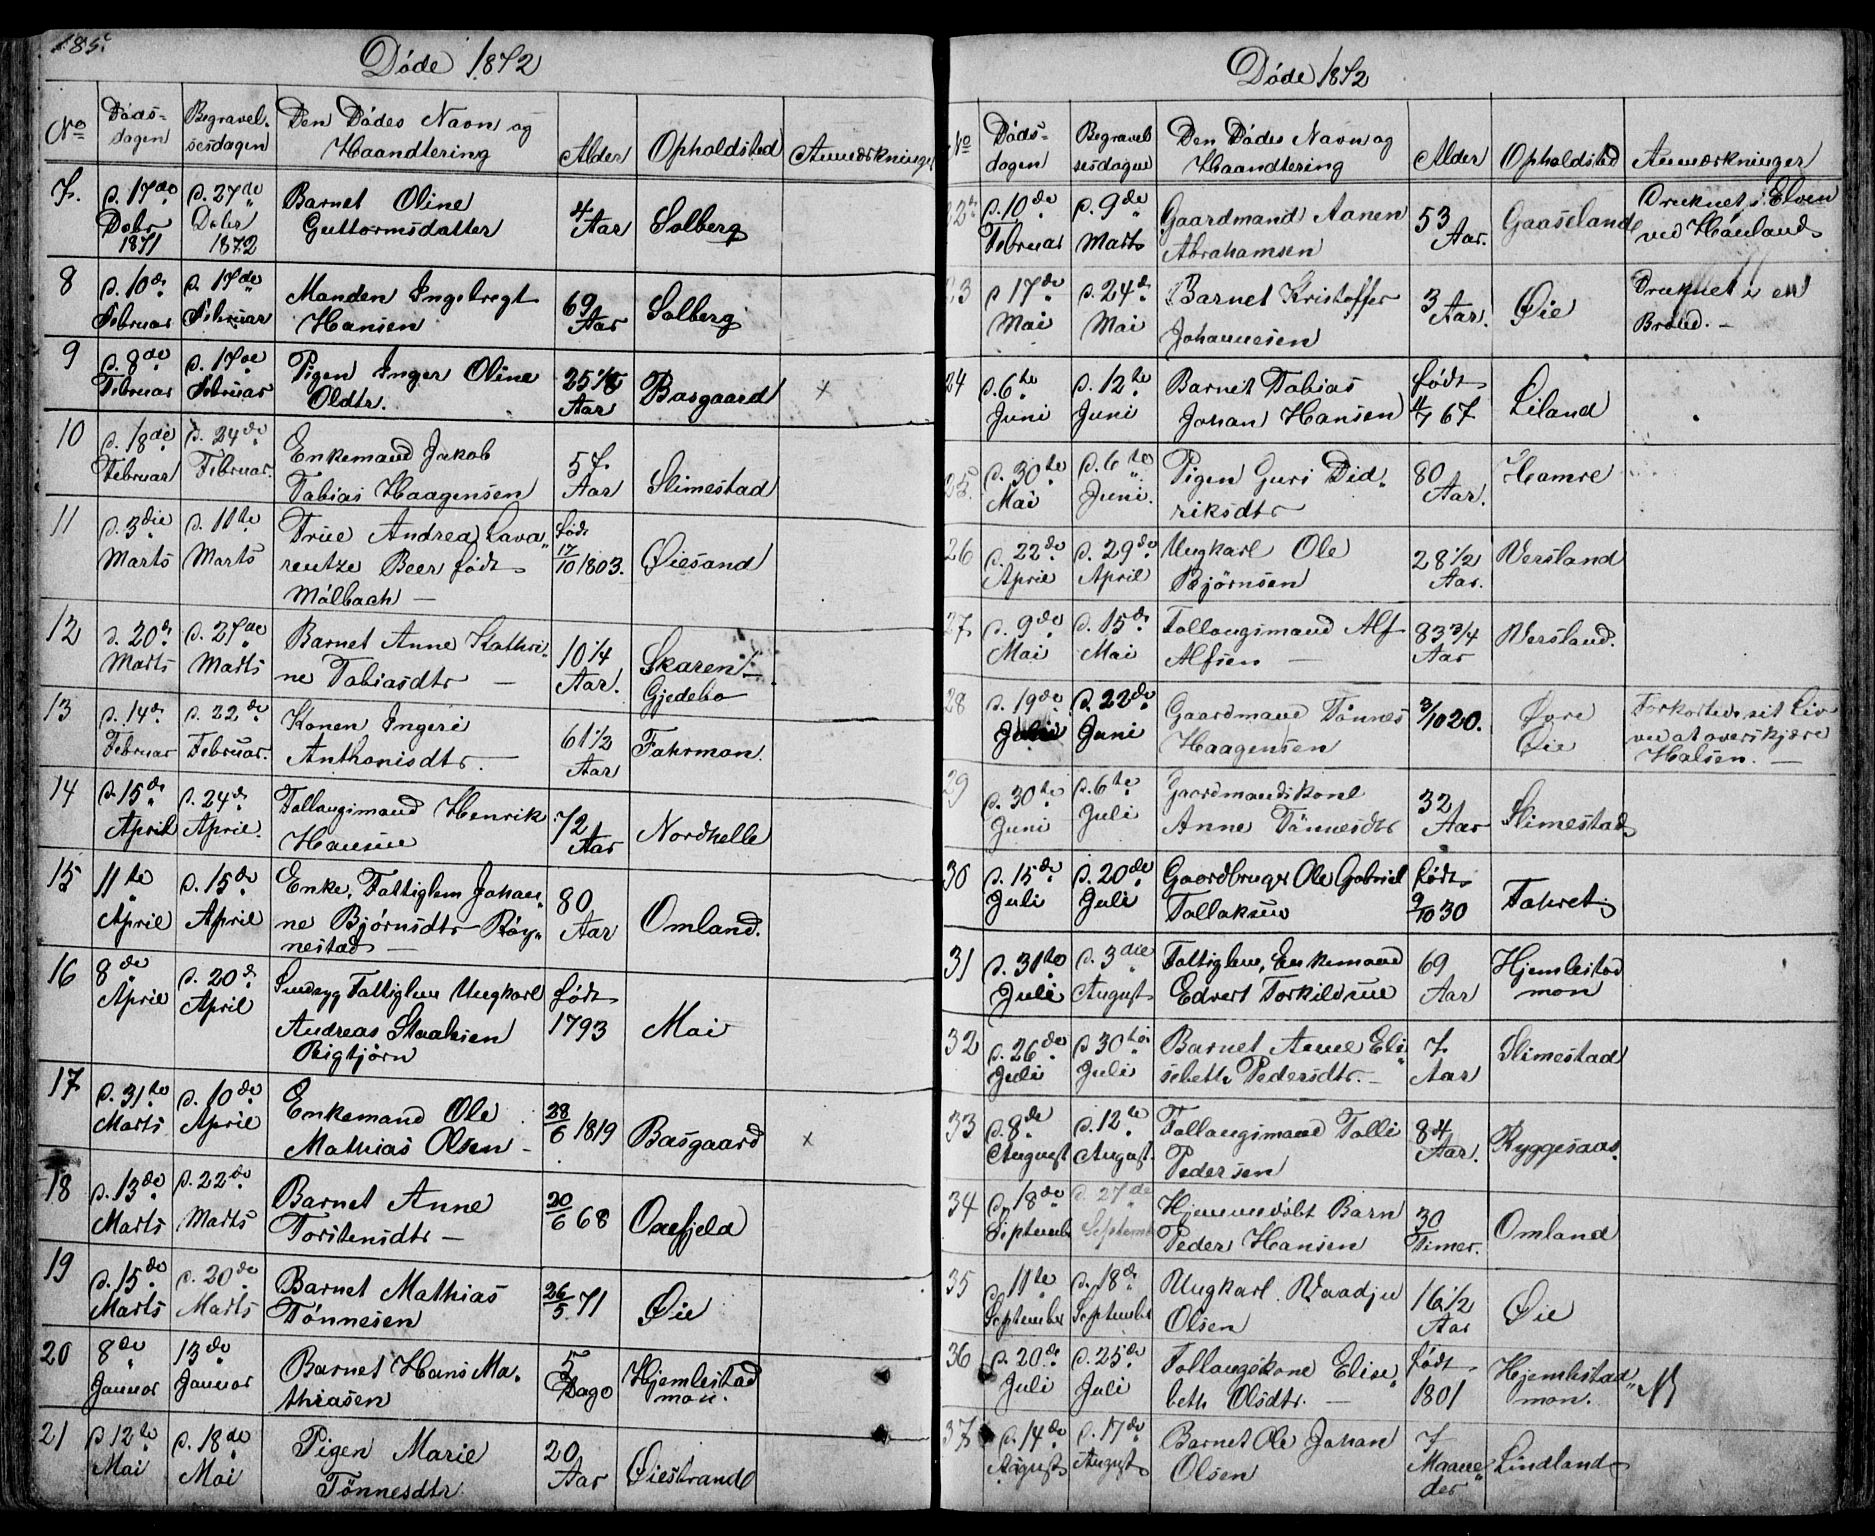 185.
Döde 1872
No
Döds-
dagen
Begravel-
sesdagen
Den Dödes Navn og
Haandtering
Alder
Opholdsted
Anmærkninger
7.
d. 17de
Debr
1871
d. 27de
Debr
1872
Barnet Oline
Guttormsdatter
4
Aar
Solberg
8
d. 10de
Februar
d. 17de
Februar
Manden Ingebregt
Hansen
69
Aar
Solberg
9
d. 8de
Februar
d. 17de
Februar
Pigen Inger Oline
Oldtr.
25 1/2
Aar
Basgaard
×
10
d. 18de
Februar
d. 24de
Februar
Enkemand Jakob
Tobias Haagensen
57
Aar
Slimestad
11
d. 3die
Marts
d. 11te
Marts
Frue Andrea Lava„
rentze Beer födt
Mölbach —
födt
17/10 1803.
Öiesand
12
d. 20de
Marts
d. 27de
Marts
Barnet Anne Kathri„
ne Tobiasdtr —
10 1/4
Aar.
Skaren
Gjedebo
13
d. 14de
Februar
d. 22de
Februar.
Konen Ingeri
Anthonisdtr. —
61 1/2
Aar
Fahrmon.
14
d. 15de
April
d. 24de
April.
Follaugsmand Henrik
Hansen
72
Aar
Nordhelle
15
11te
April
d. 15de
April
Enke, Fattiglem Johan„
ne Bjørnsdtr Röy„
nestad —
80
Aar
Omland.
16
8de
April
d. 20de
April
Sindsyg Fattiglem Ungkarl
Andreas Staalesen
Rigtjørn
födt
1793
Mai
17
d. 31te
Marts
d. 10de
April
Enkemand Ole
Mathias Olsen -
28/6 1819
Basgaard
×
18
d. 13de
Marts
d. 22de
Marts
Barnet Anne
Torstensdtr —
20/6 68
Oxefjeld
19
d. 15de
Marts
d. 20de
Marts
Barnet Mathias
Tönnesen
26/5 71
Öie
20
8de
Januar
13de
Januar
Barnet Hans Ma„
thiasen
5
Dage
Hjemlestad
mon.
21
d 12te
Mai
d. 18de
Mai
Pigen Marie
Tönnesdtr
20
Aar
Öiestrand
Döde 1872
No
Döds-
dagen
Begravel
sesdagen
Den Dödes Navn og
Haandtering
Alder
Opholdsted
Anmærkninger
22
d. 10de
Februar
d. 9de
Marts
Gaardmand Aanen
Abrahamsen
53
Aar.
Gaaseland
Druknet i Elven
ved Høuland
23
d 17de
Mai
d. 24de
Mai
Barnet Kristoffer
Johannesen
3
Aar.
Öie
Druknet i en
Brönd. —
24
d. 6te
Juni
d. 12te
Juni
Barnet Tobias
Johan Hansen
födt
4/7 67
Liland
25.
d. 30te
Mai
d. 6te
Juni.
Pigen Guri Did„
riksdtr
80
Aar.
Hamre
26
d. 22de
April
d. 29de
April
Ungkarl Ole
Bjørnsen
28 1/2
Aar.
Versland
27
d. 9de
Mai
d. 15de
Mai
Follaugsmand Alf
Alfsen —
83 3/4
Aar
Versland.
28
d. 19de
Juni
d. 22de
Juni
Gaardmand Tönnes
Haagensen
3/10 20.
Øvre
Öie
Forkortede sit Liv
ved at overskjære
Halsen. —
29
d. 30te
Juni
d. 6te
Juli
Gaardmandskone
Anne Tönnesdtr
32
Aar
Slimestad
30
d. 15de
Juli
d. 20de
Juli
Gaardbruger Ole Gabriel
Tollaksen
födt
9/10 30
Fahret
31
d. 31te
Juli
d. 3die
August
Fattiglem, Enkemand
Edvert Torkildsen
69
Aar
Hjemlestad
mon
32
d. 26de
Juli
d 30te
Juli
Barnet Anne Eli„
sebeth Pedersdtr. —
7
Aar
Slimestad
33
d. 8de
August
d. 12te
August.
Follaugsmand Tolli
Pedersen
84
Aar.
Ryggesaas
34
d. 18de
Septemb
d. 27de
Septemb
Hjemmedöbt Barn
Peder Hansen
30
Timer.
Omland
35
d. 11te
September
d. 18de
September
Ungkarl Vaadju
Olsen
16 1/2
Aar
Öie
36
d. 20de
Juli
d. 25de
Juli
Follaugskone Elise„
beth Olsdtr. —
födt
1801
Hjemlestad„
mon.
37
d. 14de
August
d. 17de
August
Barnet Ole Johan
Olsen
7
Maane„
der
Lindland